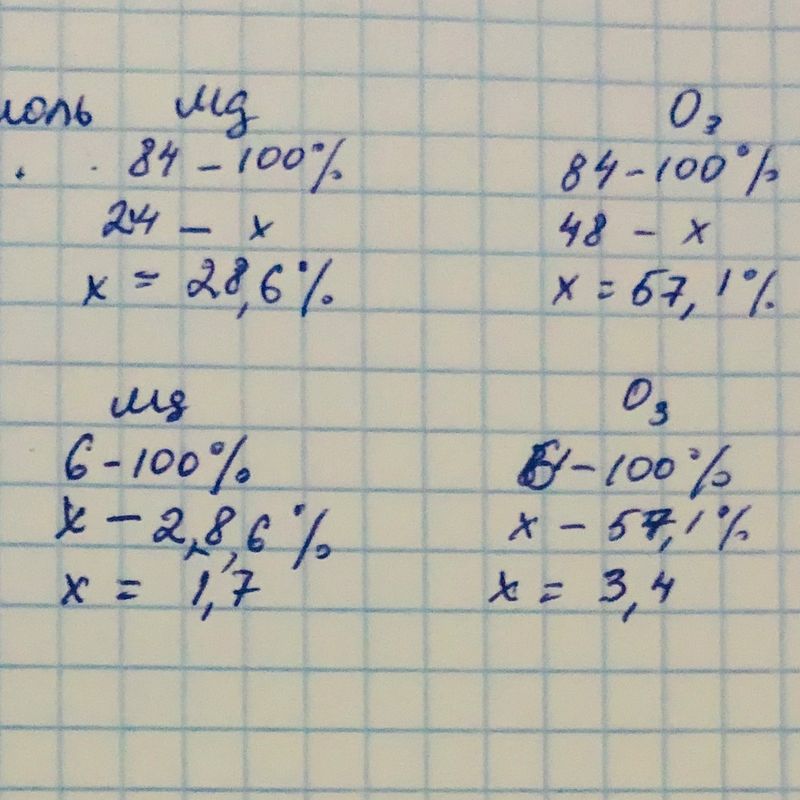 моль Mg O₃
84 – 100% 84 – 100%
24 – x 48 – x
x = 28,6% x = 57,1%
Mg O₃
6 – 100% 6 – 100%
x – 2,8,6% x – 57,1%
x = 1,7 x = 3,4